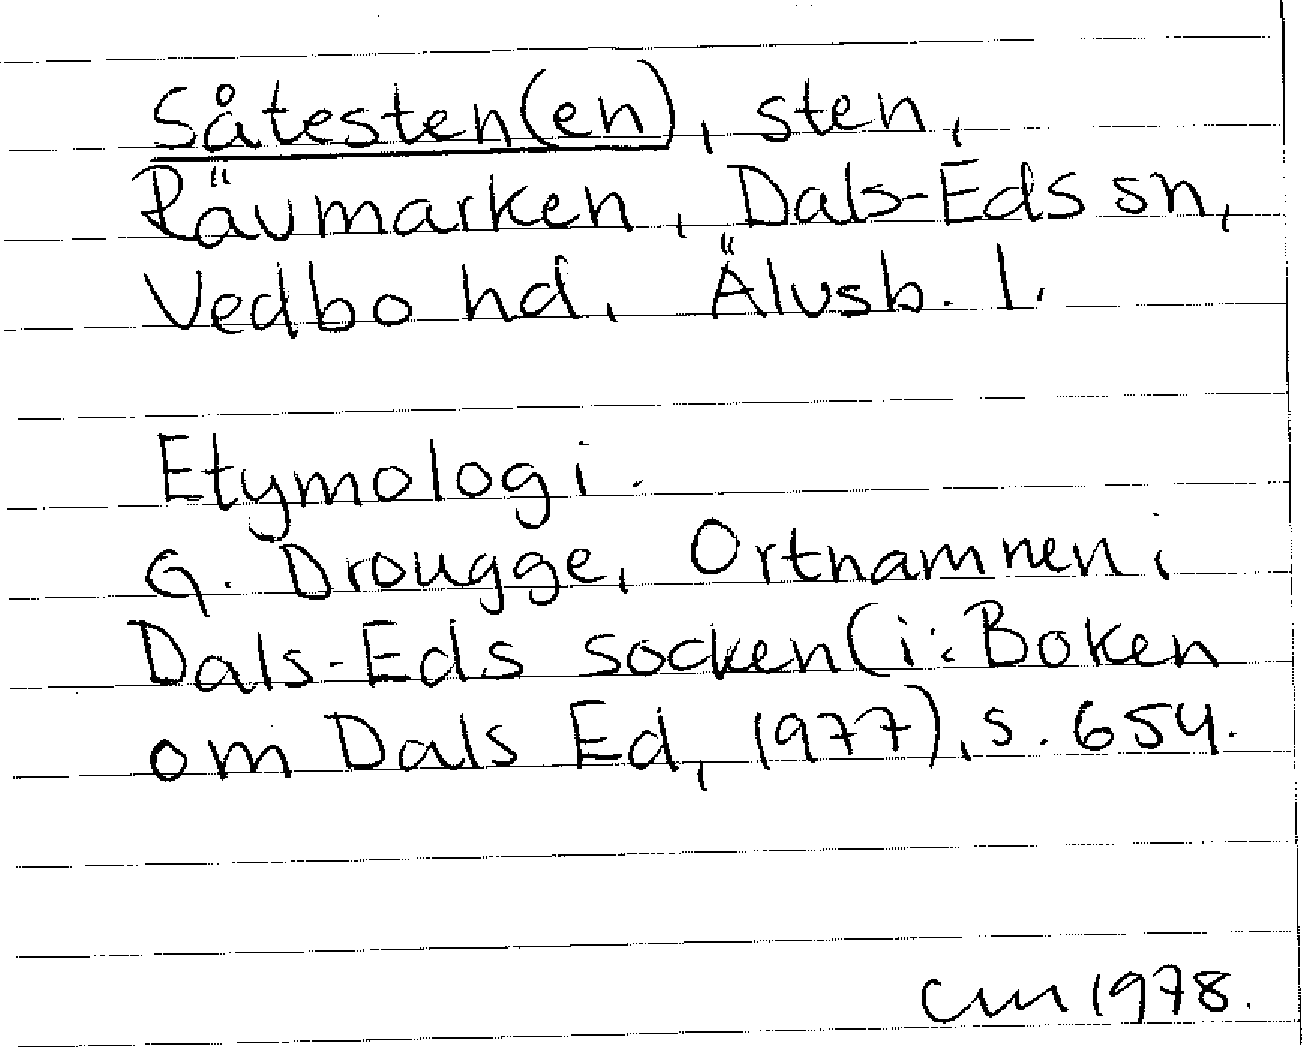 Såtesten(en), sten,
Rävmarken, Dals-Eds sn,
Vedbo hd, Älvsb. l.
Etymologi.
G. Drougge, Ortnamnen i
Dals-Eds socken (i: Boken
om Dals Ed, 1977), s. 654.
CM 1978.